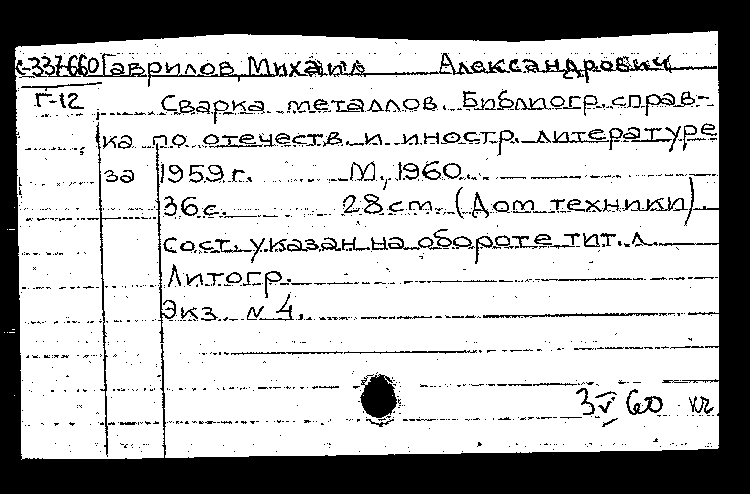 С-337660 Гаврилов, Михаил Александрович
Г-12
Сварка металлов. Библиогр. справ-
ка по отечеств. и иностр. литературе
за 1959 г. М., 1960.
36 с. 28 cm. (Дом техники).
Сост. указан на обороте тит. л.
Литогр.
Экз. N 4.
3 V 60 кг